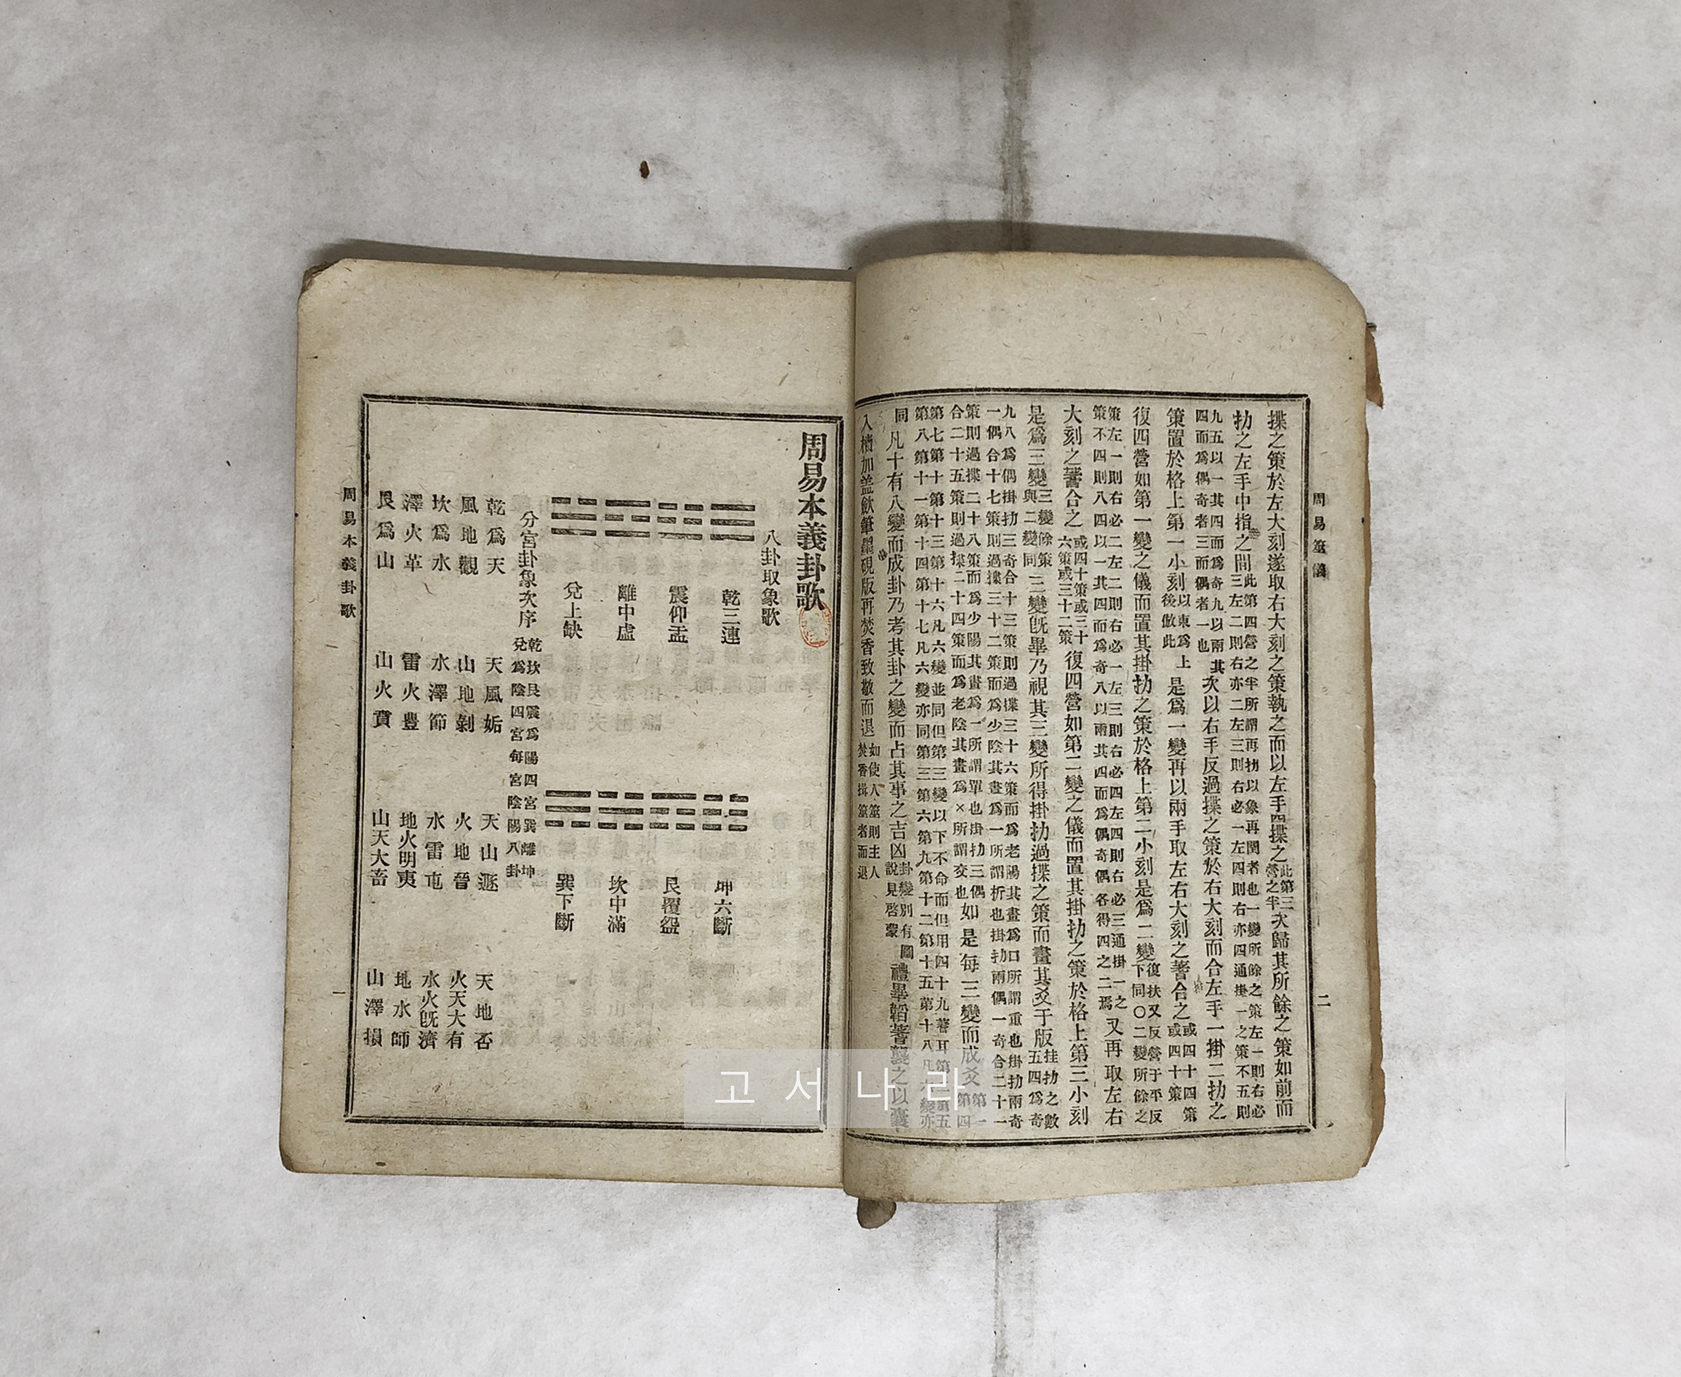 周易筮儀
二
揲之策於左大刻遂取右大刻之策執之而以左手四揲之此第三營之半次歸其所餘之策如前而
扐之左手中指之間此第四營之半所謂再扐以象再閏者也一變所餘之策左一則右必三左二則右亦二左三則右必一左四則右亦四通掛一之策不五則
九五以一其四而爲奇九以兩其四而爲偶奇者三而偶者一也次以右手反過揲之策於右大刻而合左手一掛二扐之
策置於格上第一小刻以東爲上後倣此是爲一變再以兩手取左右大刻之蓍合之或四十四策或四十策
復四營如第一變之儀而置其掛扐之策於格上第二小刻是爲二變復扶又反營于平反下同〇二變所餘之
策左一則右必二左二則右必一左三則右必四左四則右必三通掛一之策不四則八四以一其四而爲奇八以兩其四而爲偶奇偶各得四之二焉又再取左右
大刻之蓍合之或四十策或三十六策或三十二策復四營如第二變之儀而置其掛扐之策於格上第三小刻
是爲三變三變餘策與二變同三變旣畢乃視其三變所得掛扐過揲之策而畫其爻于版挂扐之數五四爲奇
九八爲偶掛扐三奇合十三策則過揲三十六策而爲老陽其畫爲口所謂重也掛扐兩奇一偶合十七策則過揲三十二策而爲少陰其畫爲一所謂拆也掛扐兩偶一奇合二十一
策則過揲二十八策而爲少陽其畫爲一所謂單也掛扐三偶合二十五策則過揲二十四策而爲老陰其畫爲×所謂交也如是每三變而成爻第一第四
第七第十第十三第十六凡六變並同但第三變以下不命而但用四十九蓍耳第二第五第八第十一第十四第十七凡六變亦同第三第六第九第十二第十五第十八凡六變亦
同凡十有八變而成卦乃考其卦之變而占其事之吉凶卦變別有圖說見啓蒙禮畢韜蓍襲之以囊
入櫝加蓋歛筆硯版再焚香致敬而退如使人筮則主人焚香揖筮者而退
周易本義卦歌
八卦取象歌
乾三連 坤六斷
震仰盂 艮覆盌
離中虛 坎中滿
兌上缺 巽下斷
分宮卦象次序 乾坎艮震爲陽四宮巽離坤兌爲陰四宮每宮陰陽八卦
乾爲天 天風姤 天山遯 天地否
風地觀 山地剝 火地晉 火天大有
坎爲水 水澤節 水雷屯 水火旣濟
澤火革 雷火豊 地火明夷 地水師
艮爲山 山火賁 山天大畜 山澤損
周易本義卦歌
一
고서나라